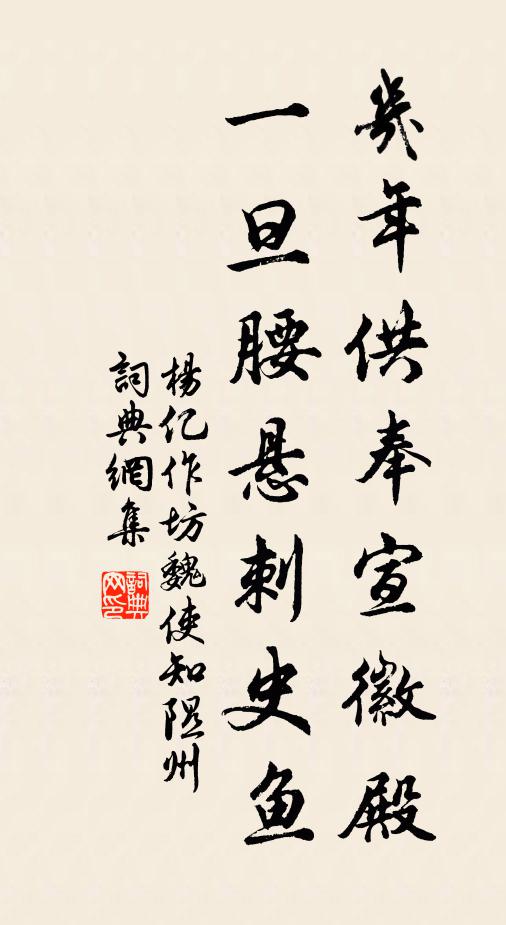 幾年供奉宣徽殿
一旦腰悬刺史鱼
楊亿作坊魏使知隰州
詞典網集
詞典
网印